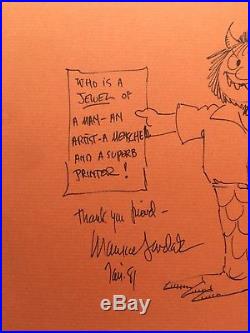 WHO IS A
JEWEL OF
A MAN-AN
ARTIST-A MENSCH
AND A SUPERB
PRINTER!
Thank you friend-
Maurice Sendak
Jan. 91